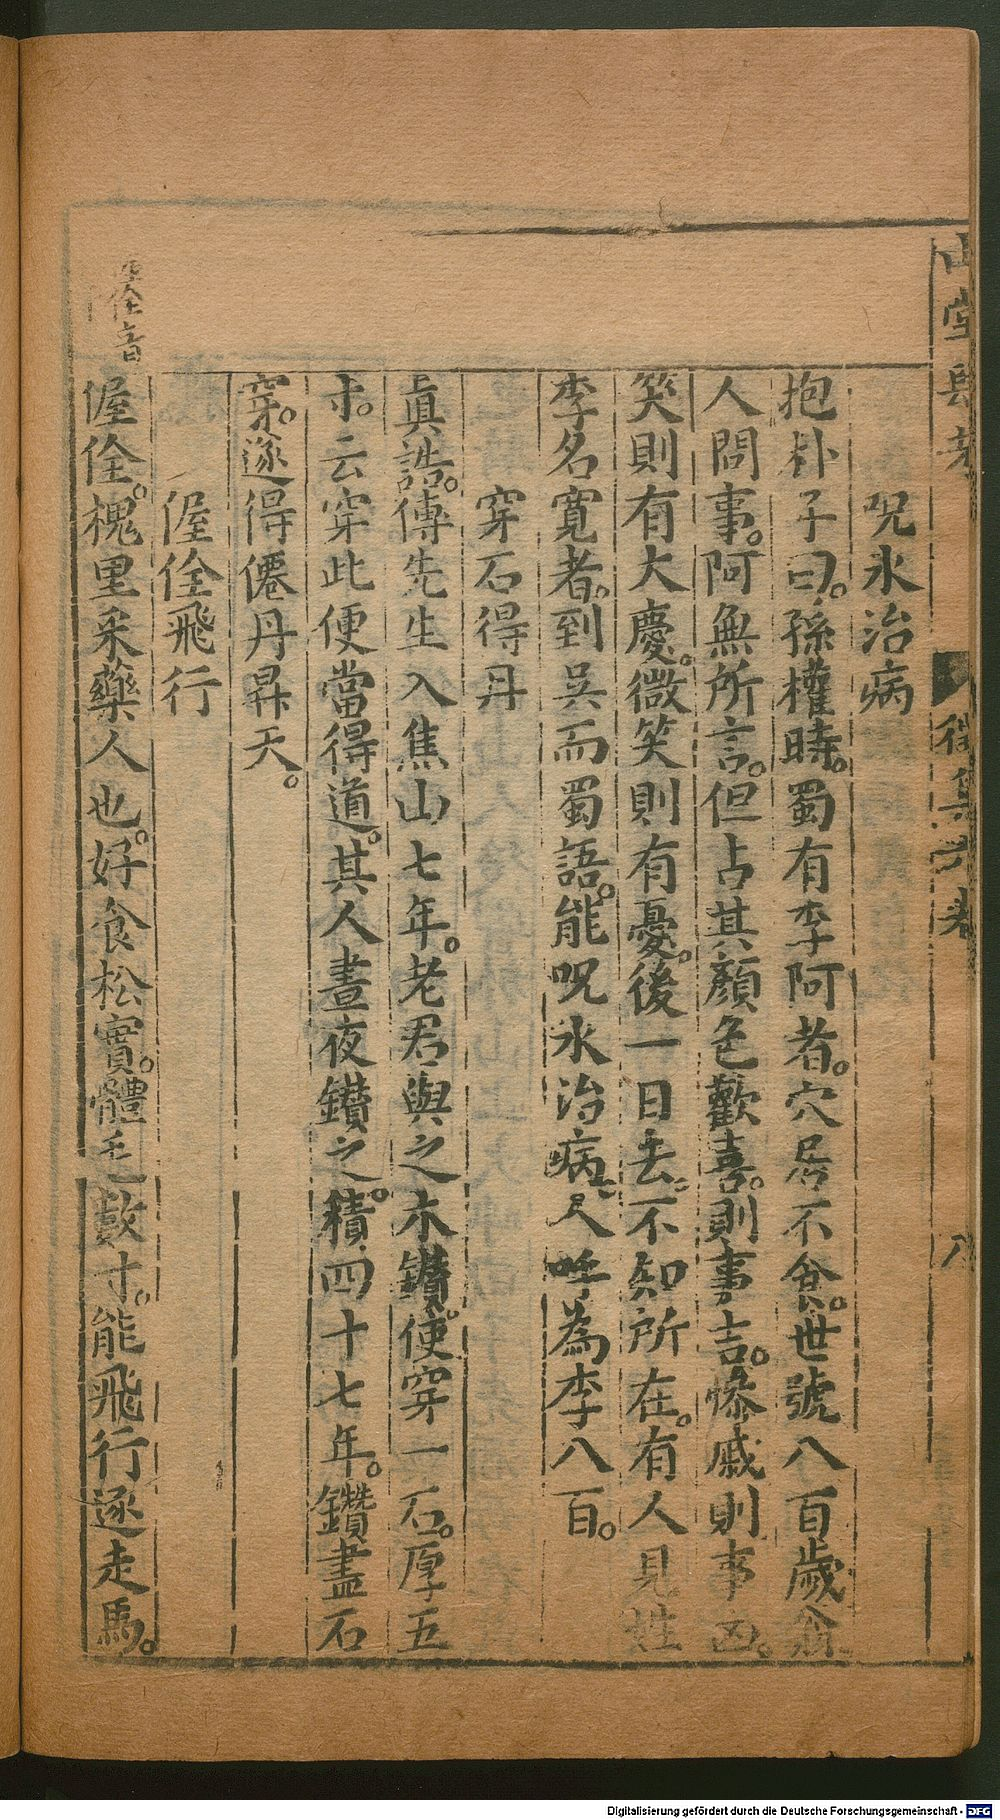 山堂肆考
徵集六卷
八
呪水治病
抱朴子曰。孫權時。蜀有李阿者。穴居不食。世號八百歲翁
人問事。阿無所言。但占其顏色歡喜。則事吉。慘戚則事凶。
笑則有大慶。微笑則有憂。後一日去不知所在。有人見姓
李名寬者。到吳而蜀語。能呪水治病。人呼為李八百。
穿石得丹
真誥。傅先生入焦山七年。老君與之木鑽。使穿一石。厚五
寸。云穿此便當得道。其人晝夜鑽之。積四十七年。鑽盡石
穿。遂得僊丹昇天。
偓佺飛行
偓佺。槐里采藥人也。好食松實。體毛數寸。能飛行逐走馬。
佺音
Digitalisierung gefördert durch die Deutsche Forschungsgemeinschaft - DFG